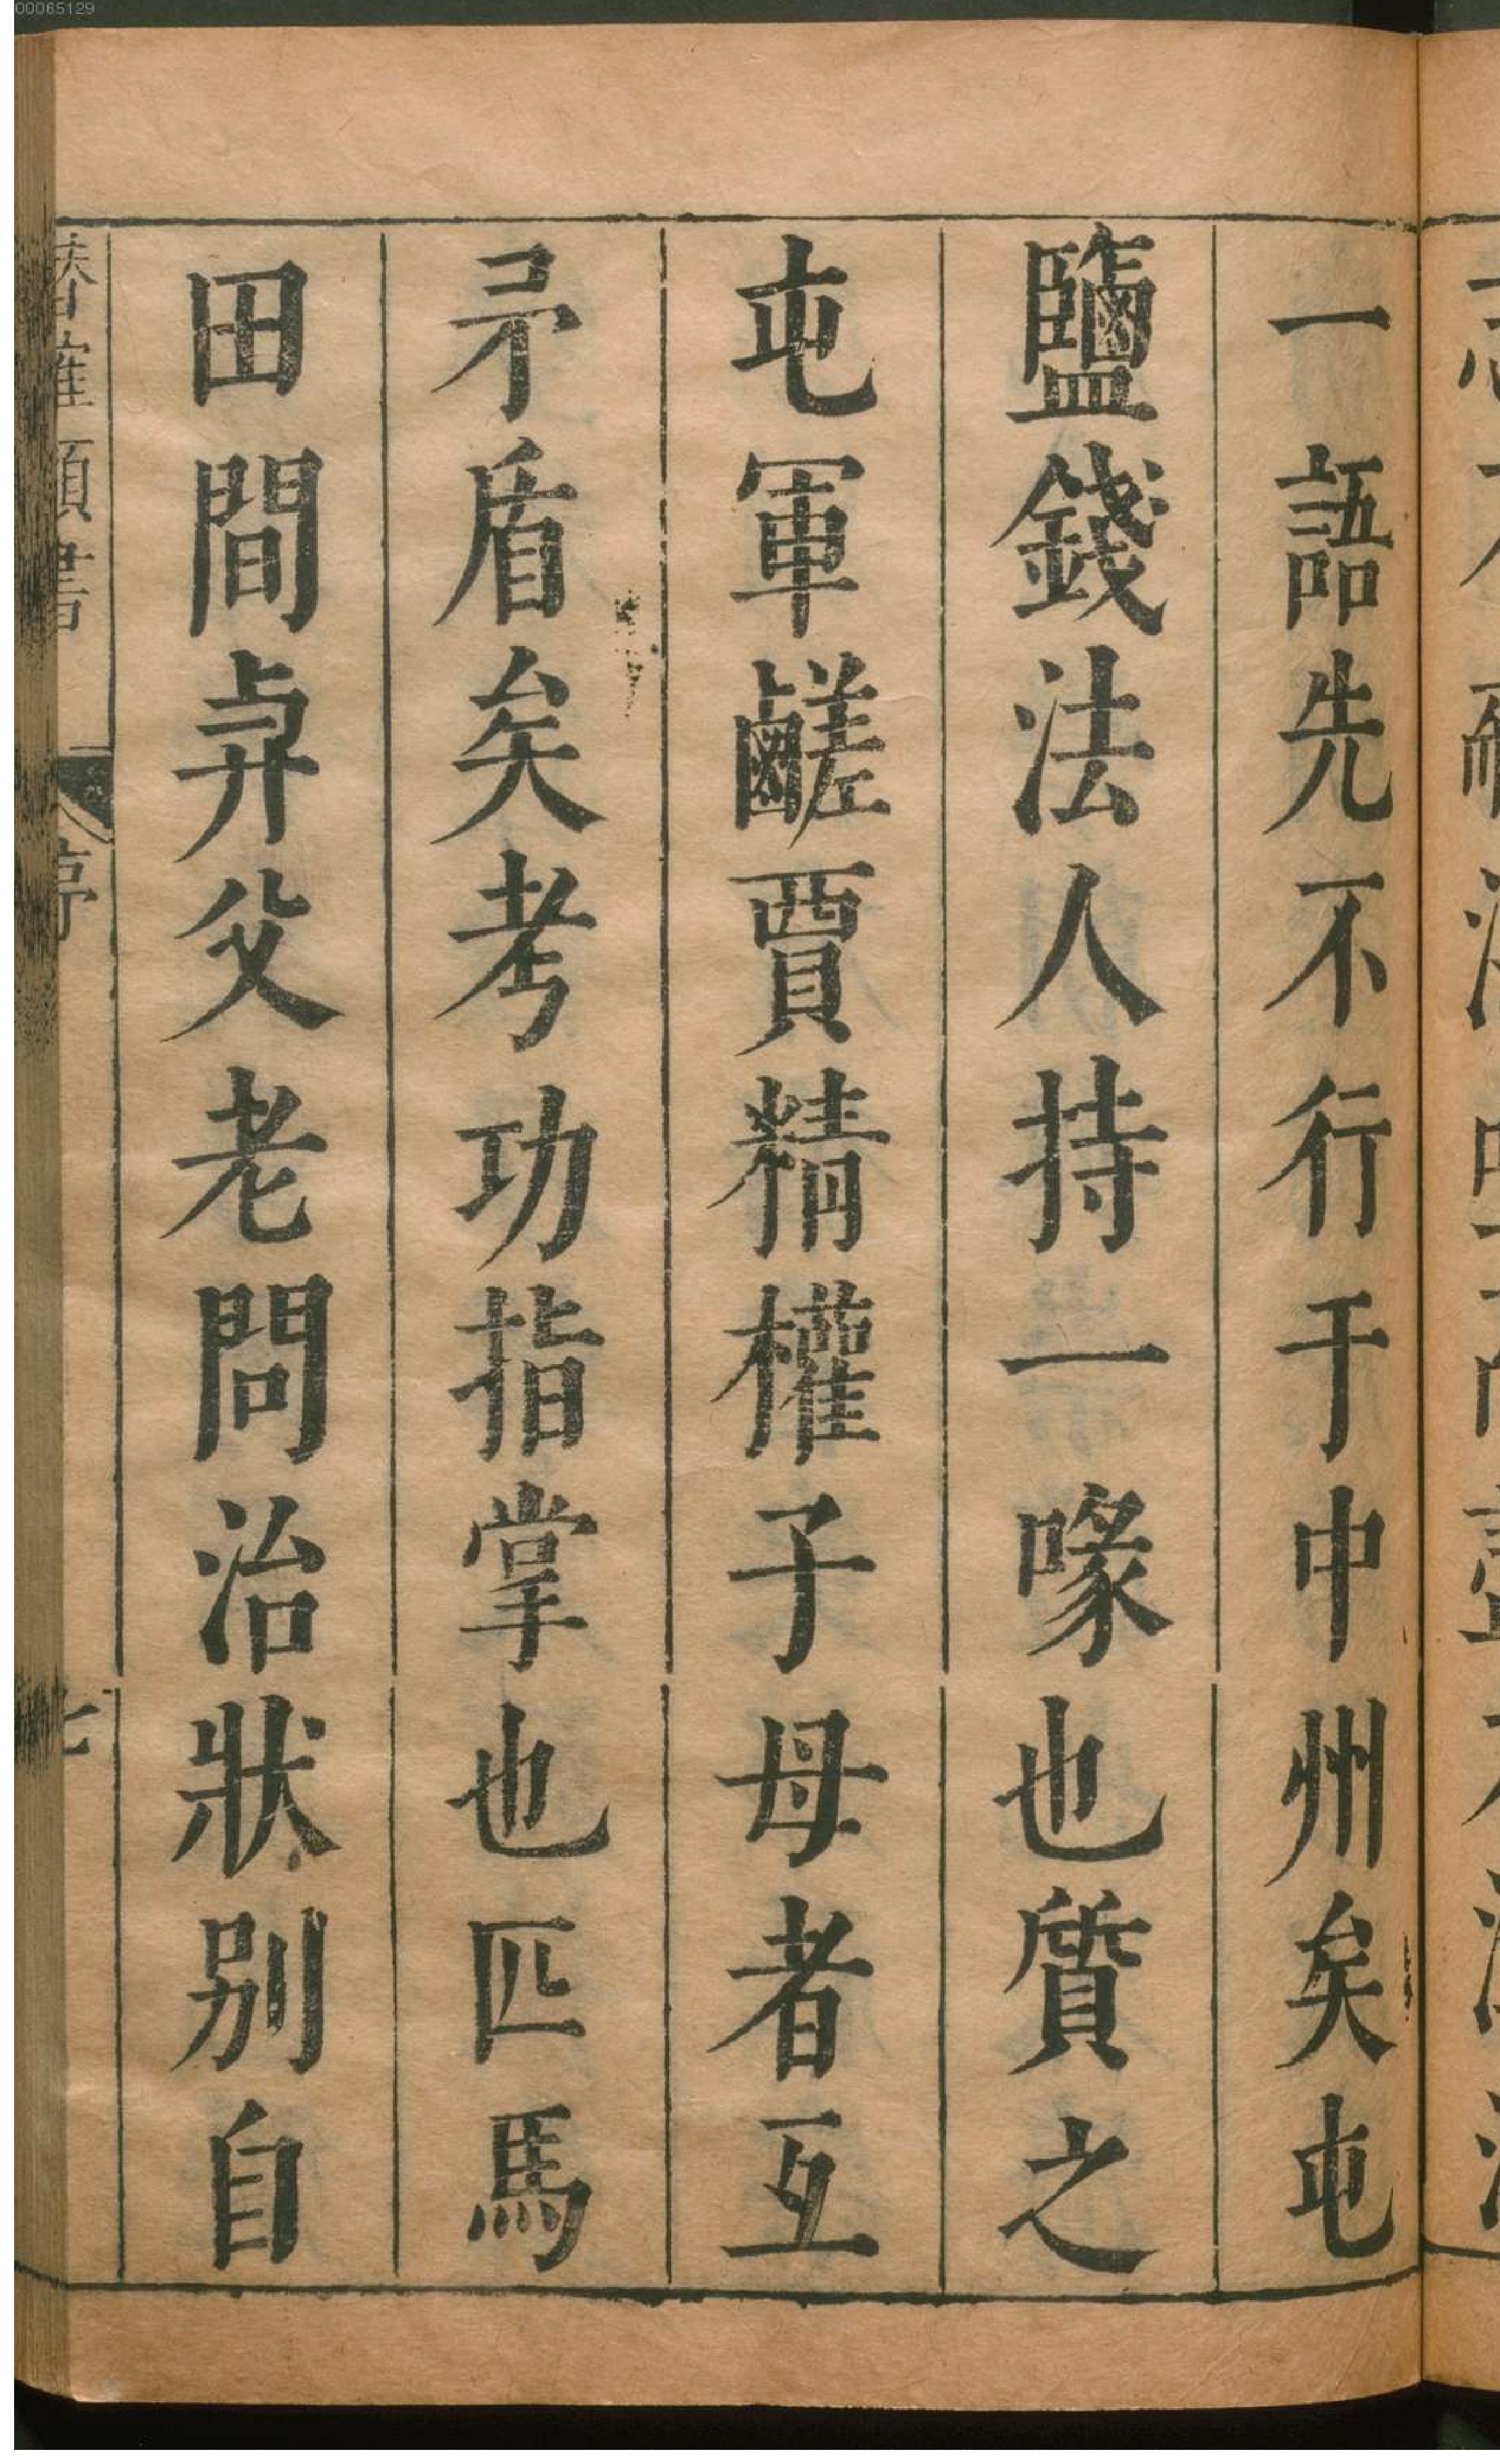 00065129
一語先不行于中州矣屯
鹽錢法人持一喙也質之
屯軍鹺賈精權子母者互
矛盾矣考功指掌也匹馬
田間父老問治狀别自
潛確類書 序 七